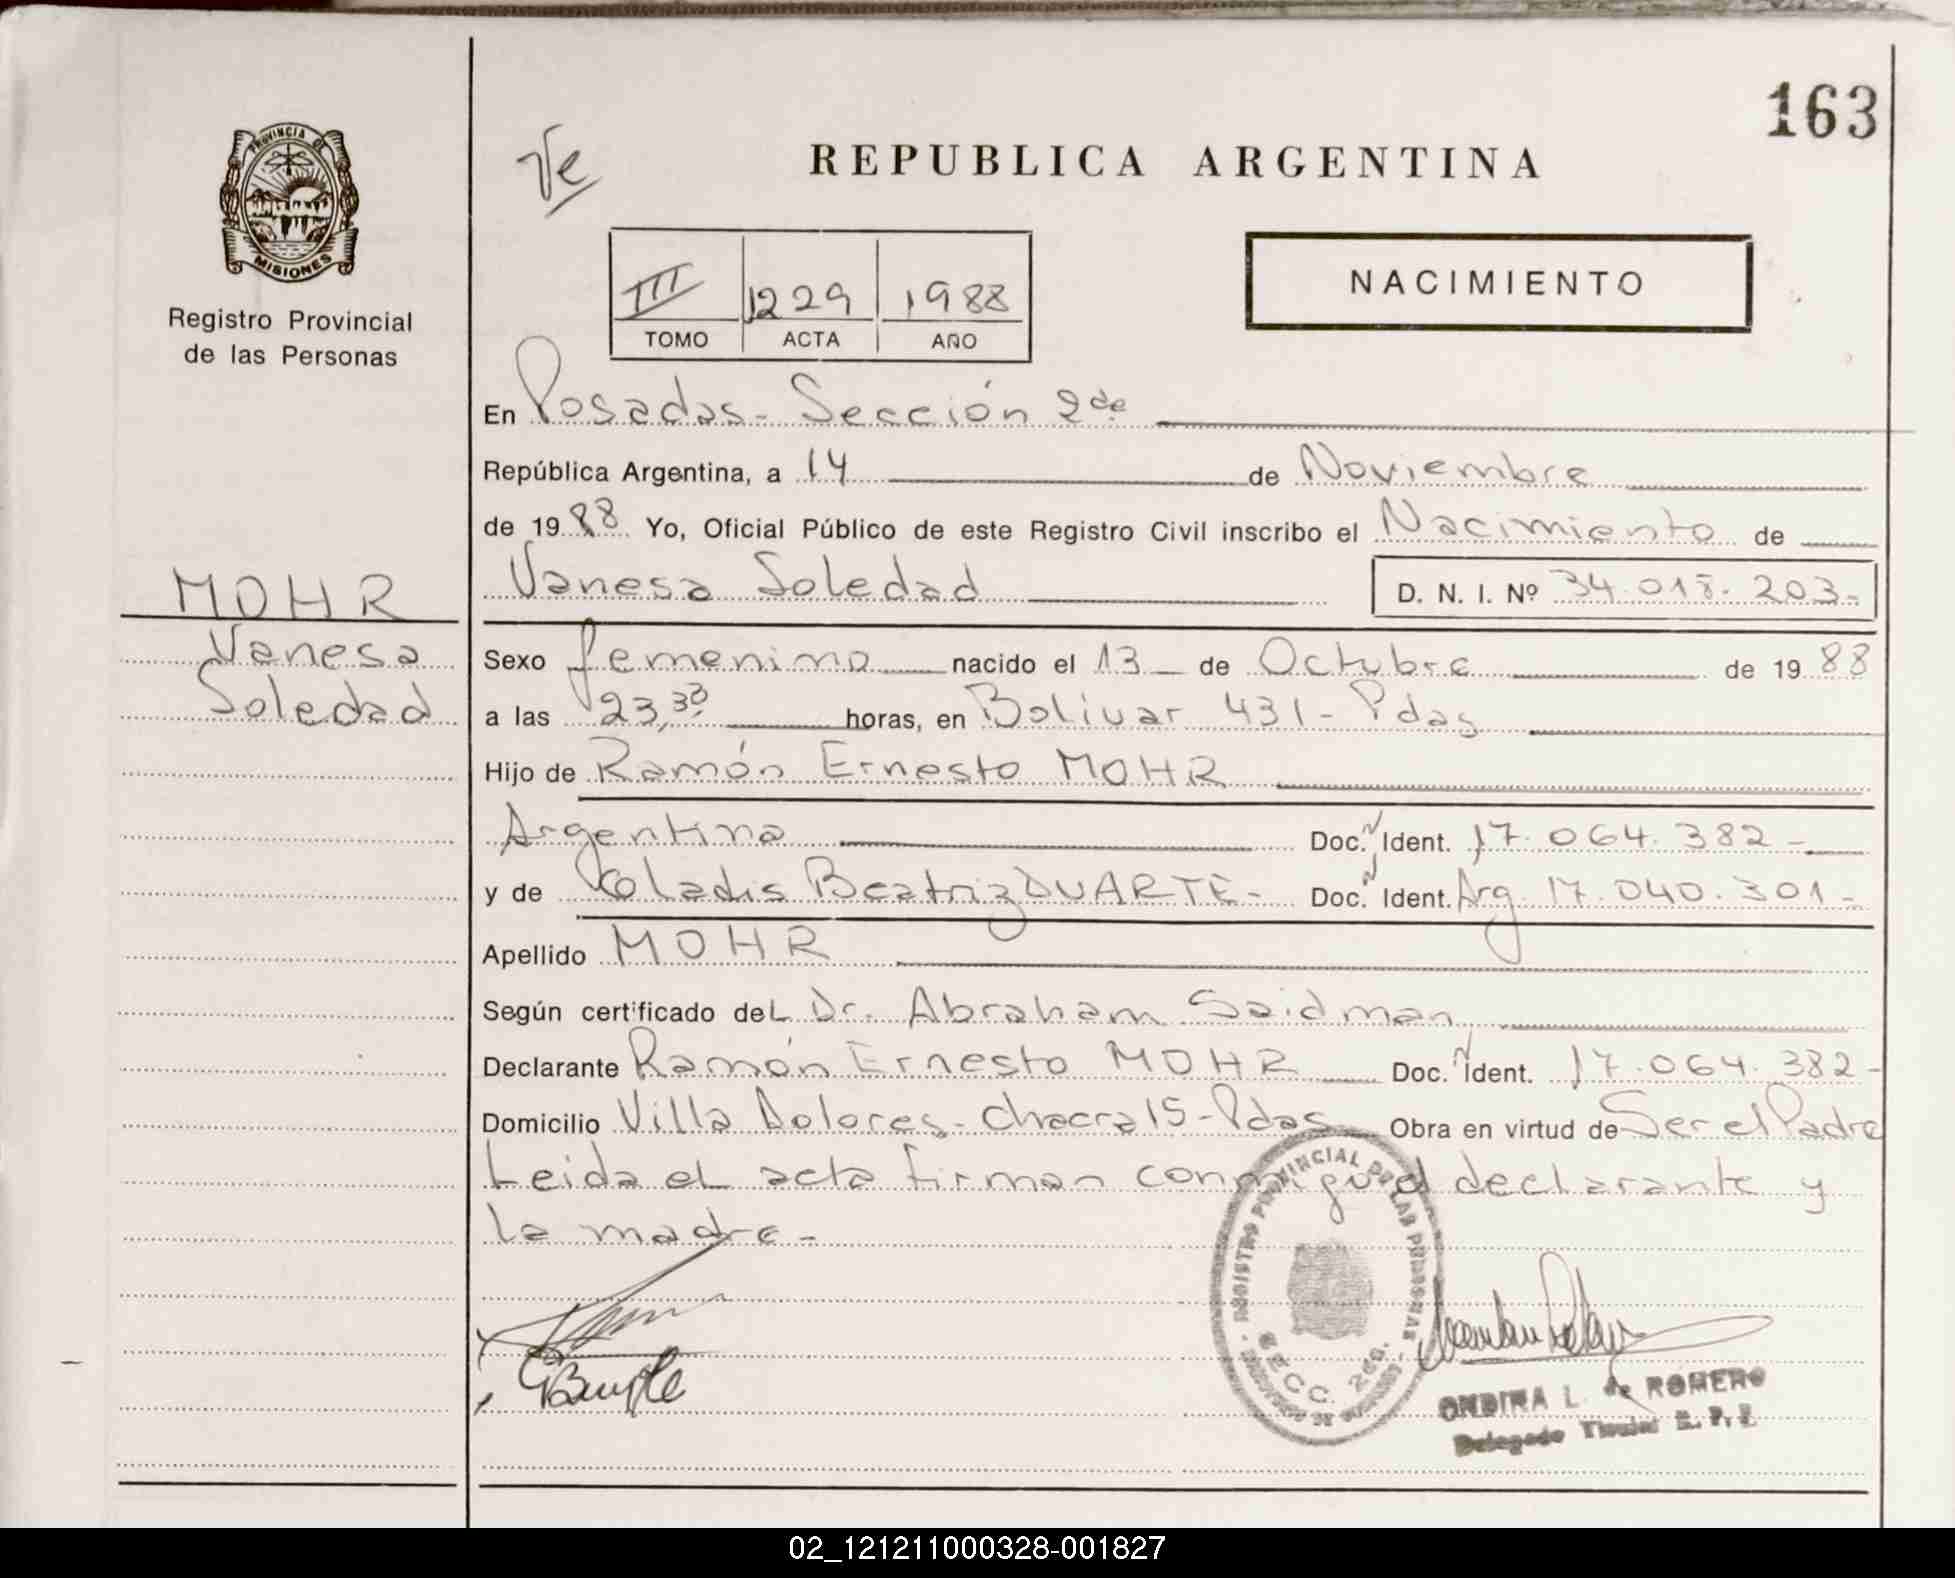 163
PROVINCIA DE
MISIONES
Registro Provincial
de las Personas
Ve
REPUBLICA ARGENTINA
III 1229 1988
TOMO ACTA AÑO
NACIMIENTO
En Posadas - Sección 2da
República Argentina, a 14 de Noviembre
de 1988 Yo, Oficial Público de este Registro Civil inscribo el Nacimiento de
MOHR
Vanesa
Soledad
Vanesa Soledad D. N. I. Nº 34.018.203-
Sexo femenino nacido el 13 de Octubre de 1988
a las 23,30 horas, en Bolivar 431 - Pdas
Hijo de Ramón Ernesto MOHR
Argentina Doc. N Ident. 17.064.382-
y de Gladis Beatriz DUARTE- Doc. N Ident. Arg 17.040.301-
Apellido MOHR
Según certificado del Dr. Abraham Saidman
Declarante Ramón Ernesto MOHR Doc. N Ident. 17.064.382-
Domicilio Villa Dolores - Chacra 15 - Pdas Obra en virtud de Ser el Padre
Leida el acta firman conmigo el declarante y
la madre -
REGISTRO PROVINCIAL DE LAS PERSONAS
SECC. 2da.
ONDINA L. de ROMERO
Delegado Titular R. P. P.
02_121211000328-001827